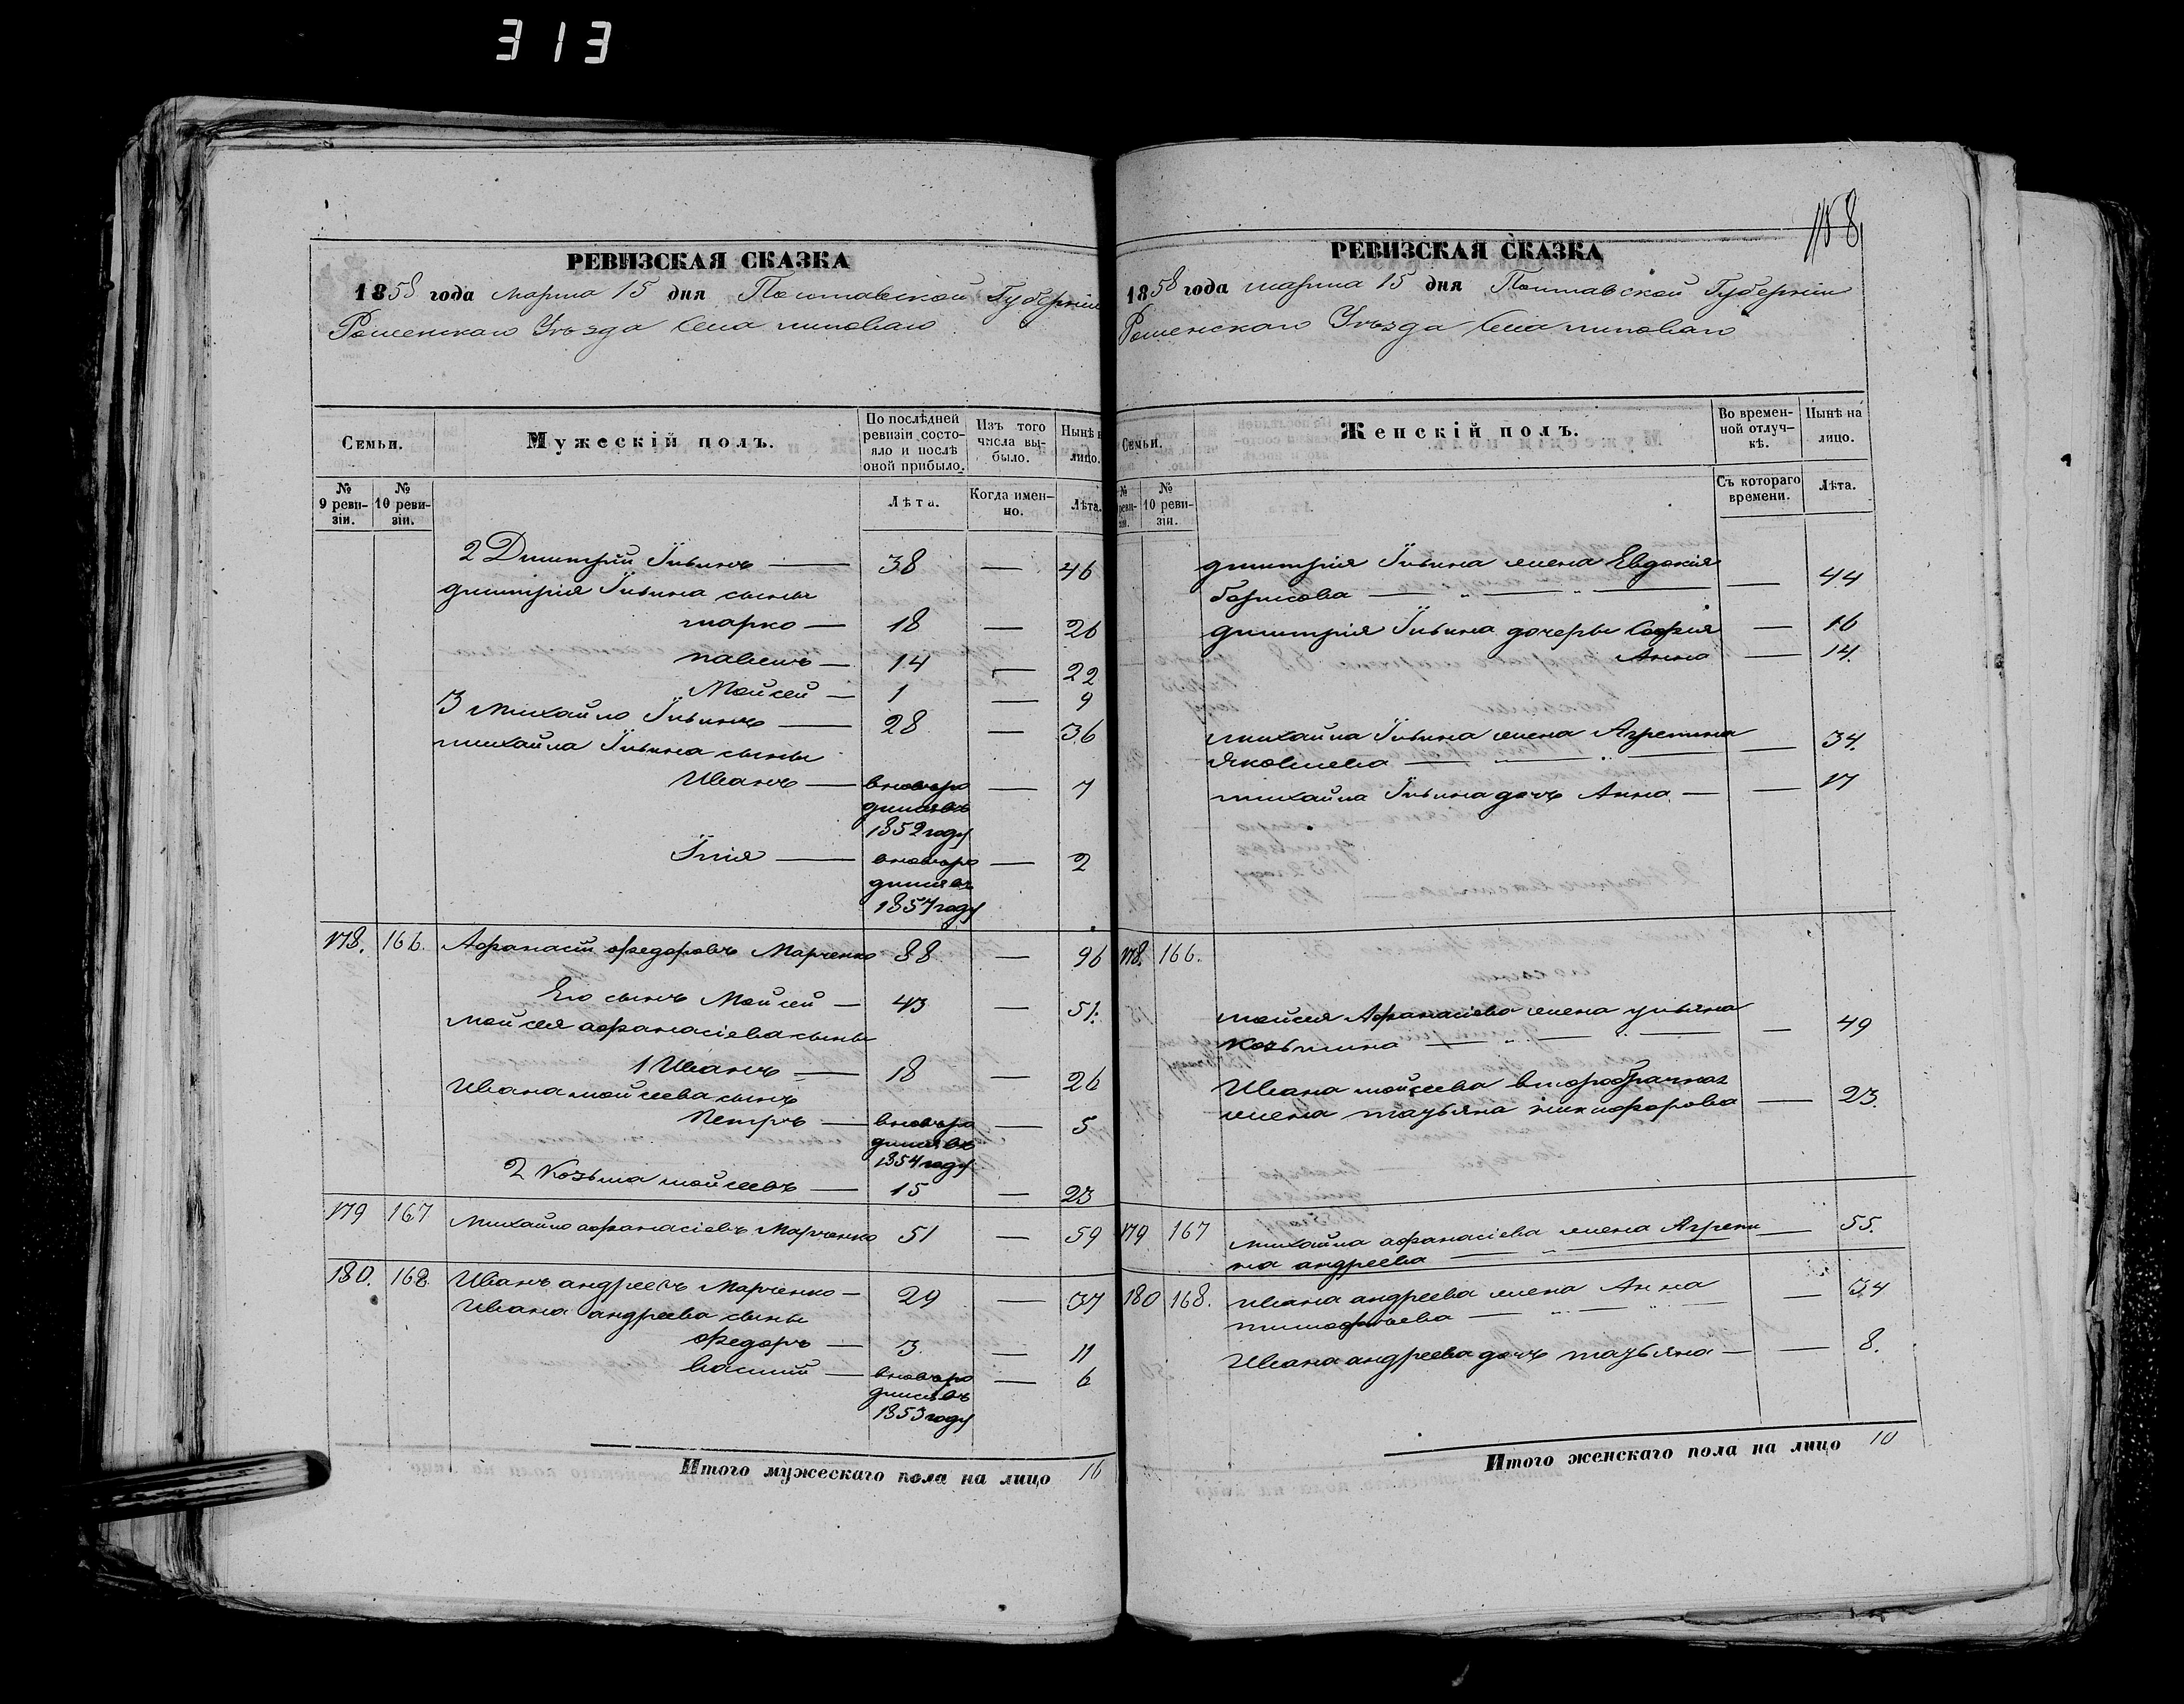 313
РЕВИЗСКАЯ СКАЗКА
1858 года марта 15 дня Полтавской Губерніи
Роменскаго Уѣзда Села
Семьи.
Мужескій полъ.
По послѣдней ревизіи состояло и послѣ оной прибыло.
Изъ того числа выбыло.
Нынѣ на лицо.
№ 9 ревизіи.
№ 10 ревизіи.
Лѣта.
Когда именно.
Лѣта.
2 Дмитрій Ильинъ — 38 — 46
дмитрія Ильина сыны
марко — 18 — 26
павелъ — 14 — 22
Мойсей — 1 — 9
3 Михайло Ильинъ — 28 — 36
михайла Ильина сыны
Иванъ — вновьро — 7
дился въ
1852 году
Илія — вновьро — 2
дился въ
1857 году
178. 166. Афанасій федоровъ Марченко 88 — 96
Его сынъ Мойсей — 43 — 51.
мойсея афанасіева сыны
1 Иванъ — 18 — 26
Ивана мойсеева сынъ
Петръ — вновьро — 5
дился въ
1854 году
2 Козьма мойсеевъ — 15 — 23
179 167 Михайло афанасіевъ Марченко 51 — 59
180. 168 Иванъ андреевъ Марченко — 29 — 37
Ивана андреева сыны
федоръ — 3. — 11
василій — вновьро — 6
дился въ
1853 году
Итого мужескаго пола на лицо 16
158
РЕВИЗСКАЯ СКАЗКА
1858 года марта 15 дня Полтавской Губерніи
Роменскаго Уѣзда Села
Семьи.
Женскій полъ.
Во временной отлучкѣ.
Нынѣ на лицо.
№ реви-зіи.
№ 10 ревизіи.
Съ котораго времени.
Лѣта.
дмитрія Ильина жена Евдокія
борисова — 44
дмитрія Ильина дочери Софія — 16
Анна — 14.
михайла Ильина жена Агрепина
Яковлева — 34.
михайла Ильина дочь Анна — 17
178. 166.
мойсея Афанасіева жена ульяна
Козьмина — 49
Ивана мойсеева второбрачная
жена татьяна никифорова — 23.
179 167 михайла афанасіева жена Агрепи — 55.
на андреева
180 168. ивана андреева жена Анна — 34
тимофѣева
Ивана андреева дочь татьяна — 8.
Итого женскаго пола на лицо 10